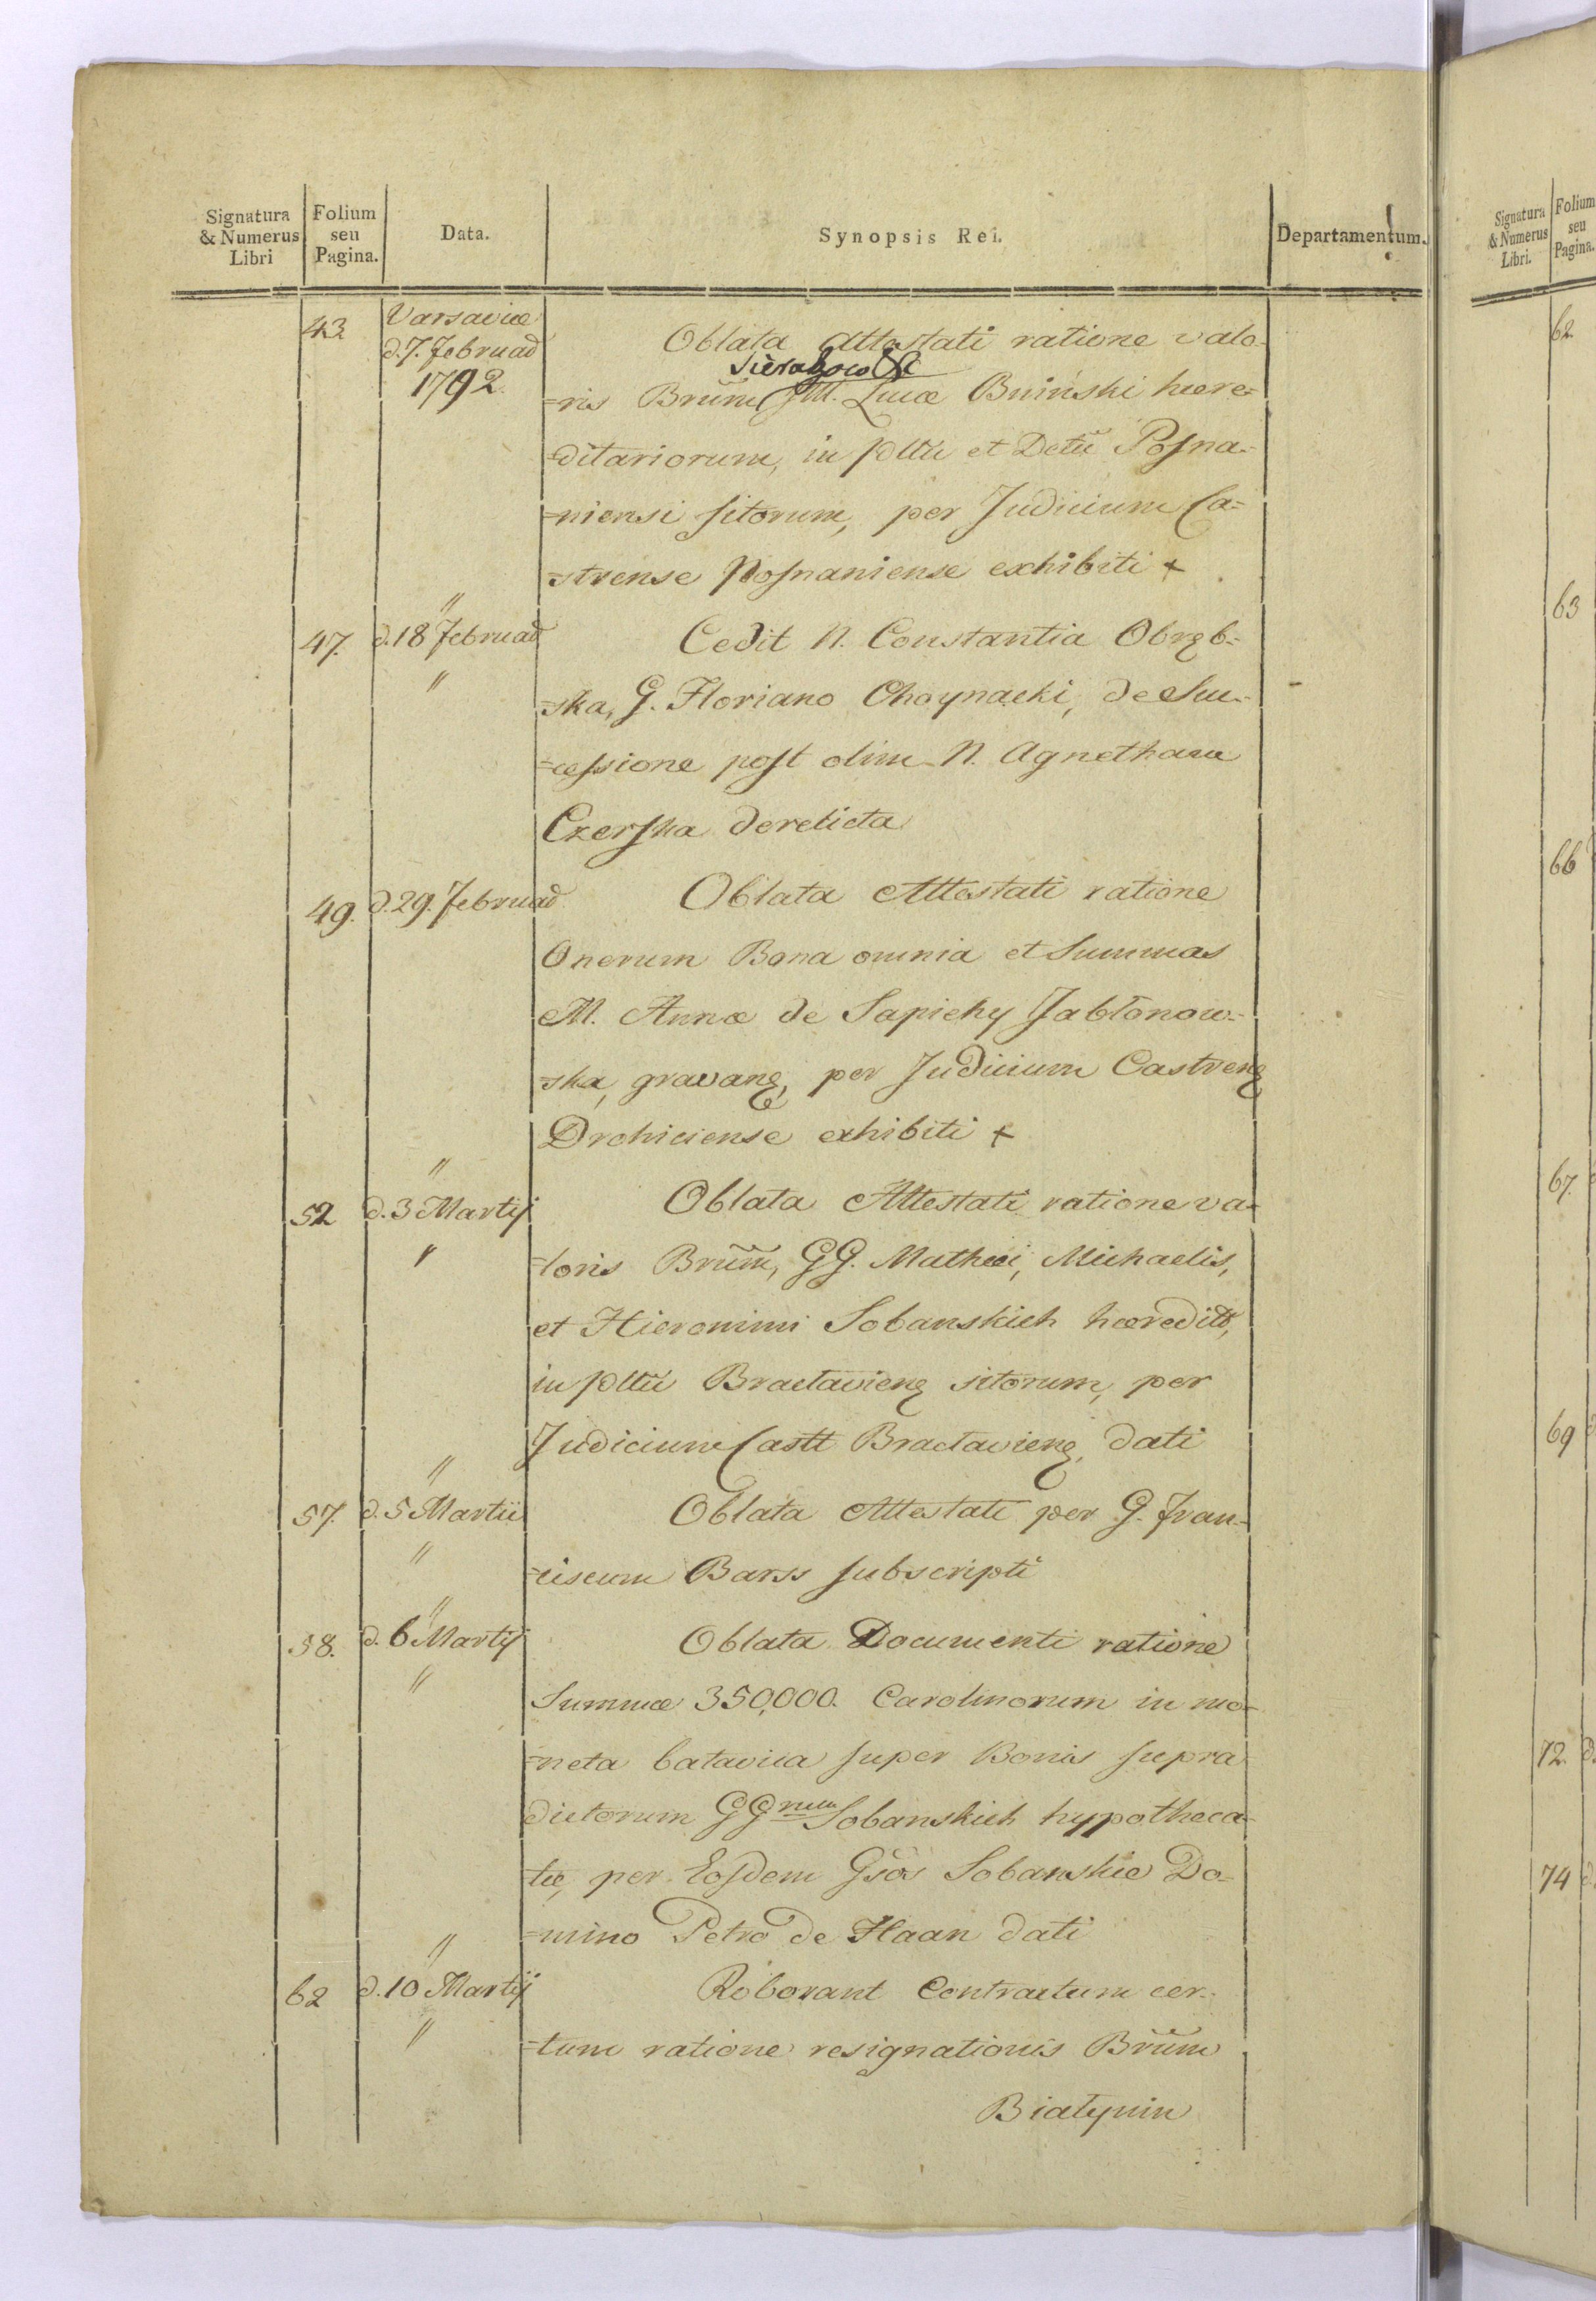 Signatura & Numerus Libri
Folium seu Pagina.
Data.
Synopsis Rei.
Departamentum.
43. Varsaviæ d. 7. Februar 1792. Oblata attestati ratione valo-
=ris Brum̃ M. Lucæ Bniński hære=
=ditariorum, in Plttũ et Dctũ Posna=
=niensi sitorum, per Judicium Ca=
=strense Posnaniense exhibiti +
47. " d. 18 Februar " Cedit N. Constantia Obręb=
=ska, G. Floriano Choynacki, de Suc=
=cessione post olim N. Agnetham
Czerska derelicta
49. d. 29. Februar Oblata Attestati ratione
Onerum Bona omnia et Summas
M. Annæ de Sapiehy Jabłonow=
=ska, gravanꝫ, per Judicium Castrenꝫ
Drohiciense exhibiti +
52 " d. 3 Martij " Oblata Attestati ratione va=
=loris Brum̃, GG. Mathæi, Michaelis,
et Hieronimi Sobanskich hæredit,
in Plttũ Braclavienꝫ sitorum, per
Judicium Castt Braclavienꝫ, dati
57. " d. 5 Martii " Oblata Attestati per G. Fran=
=ciscum Barss subscripti
58. " d. 6 Martij " Oblata Documenti ratione
Summæ 350,000. Carolinorum in mo=
=neta batavica super Bonis supra
dictorum GGrum Sobanskich hypotheca=
tæ, per Eosdem Gsos Sobanskie Do=
=mino Petro de Haan dati
62 " d. 10 Martij " Roborant Contractum cer=
=tum ratione resignationis Brum̃
Białynin
Signatura & Numerus Libri.
Folium seu Pagina.
62
63
66
67.
69
72.
74